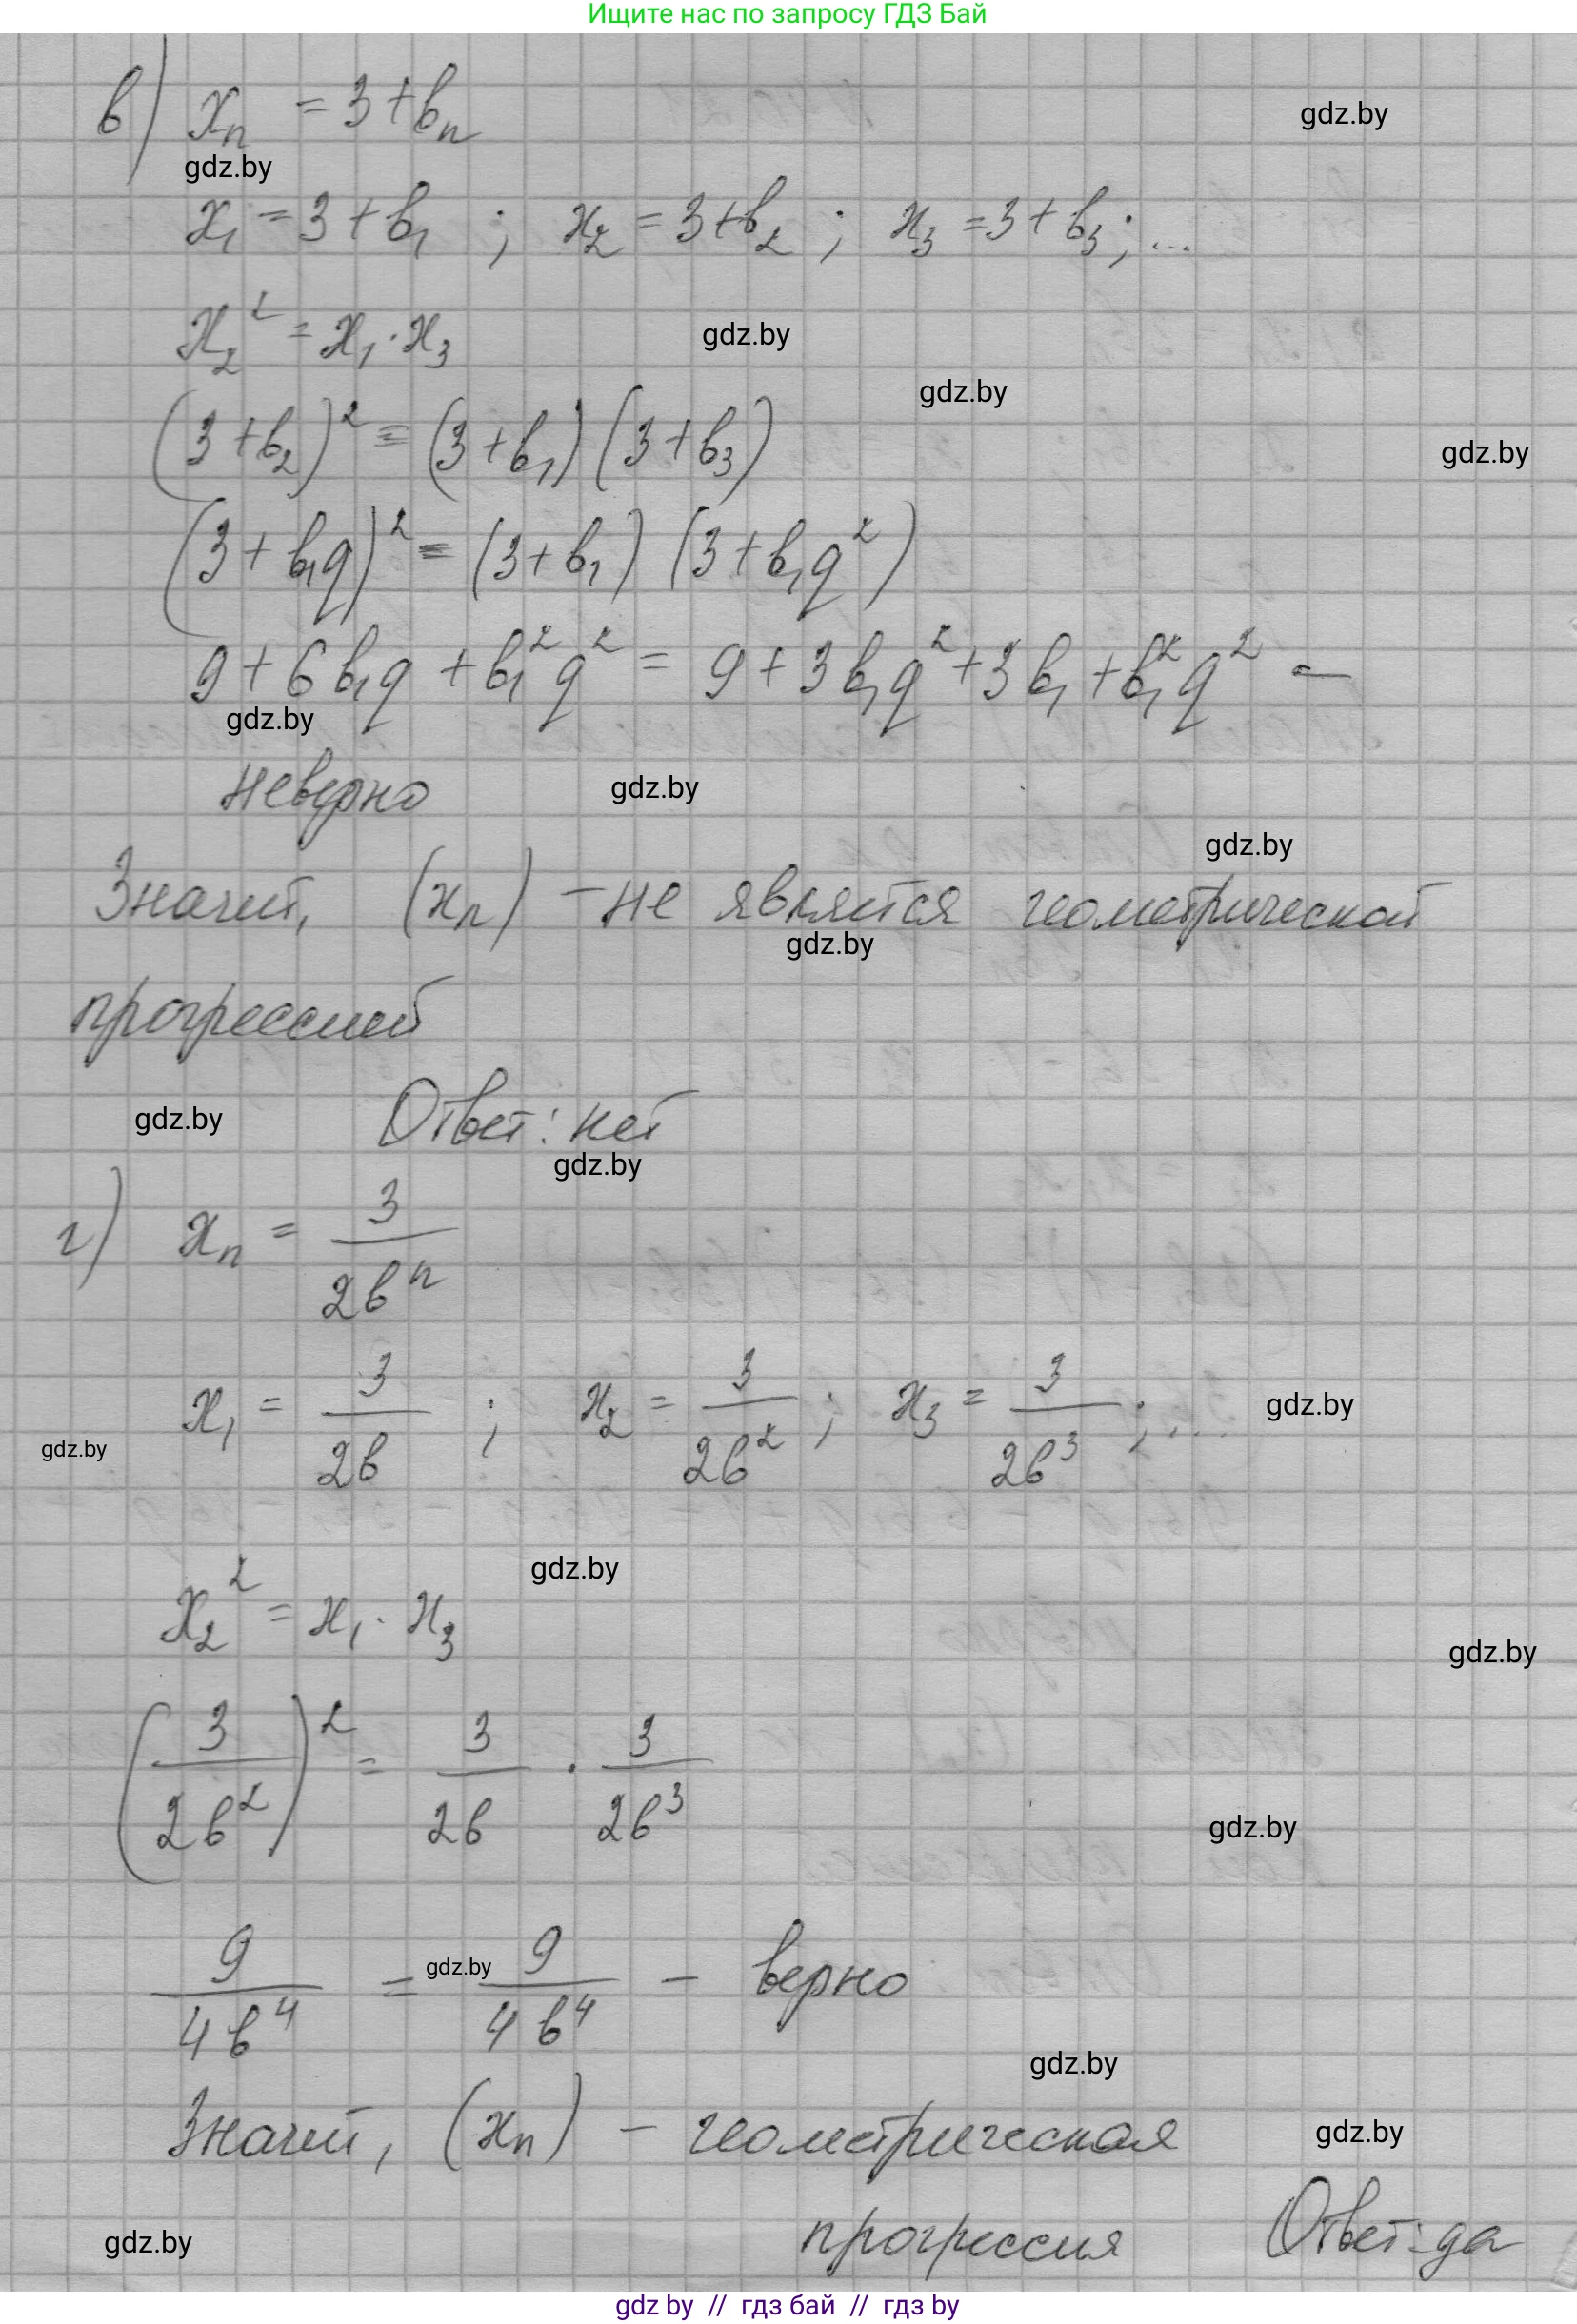 Ищите нас по запросу ГДЗ Бай
в) xₙ = 3 + bₙ
gdz.by
gdz.by
x₁ = 3 + b₁ ; x₂ = 3 + b₂ ; x₃ = 3 + b₃ ; ...
x₂² = x₁ · x₃
gdz.by
gdz.by
(3 + b₂)² = (3 + b₁)(3 + b₃)
gdz.by
(3 + b₁q)² = (3 + b₁)(3 + b₁q²)
9 + 6b₁q + b₁²q² = 9 + 3b₁q² + 3b₁ + b₁²q² —
gdz.by
неверно
gdz.by
gdz.by
Значит, (xₙ) – не является геометрической
gdz.by
прогрессией
gdz.by
Ответ: нет
gdz.by
г) xₙ = 3/(2bⁿ)
x₁ = 3/(2b) ; x₂ = 3/(2b²) ; x₃ = 3/(2b³) ; ...
gdz.by
gdz.by
gdz.by
x₂² = x₁ · x₃
gdz.by
(3/(2b²))² = 3/(2b) · 3/(2b³)
gdz.by
9/(4b⁴) = 9/(4b⁴) – верно
gdz.by
gdz.by
Значит, (xₙ) – геометрическая
gdz.by
прогрессия Ответ: да
gdz.by
gdz by // гдз бай // гдз by